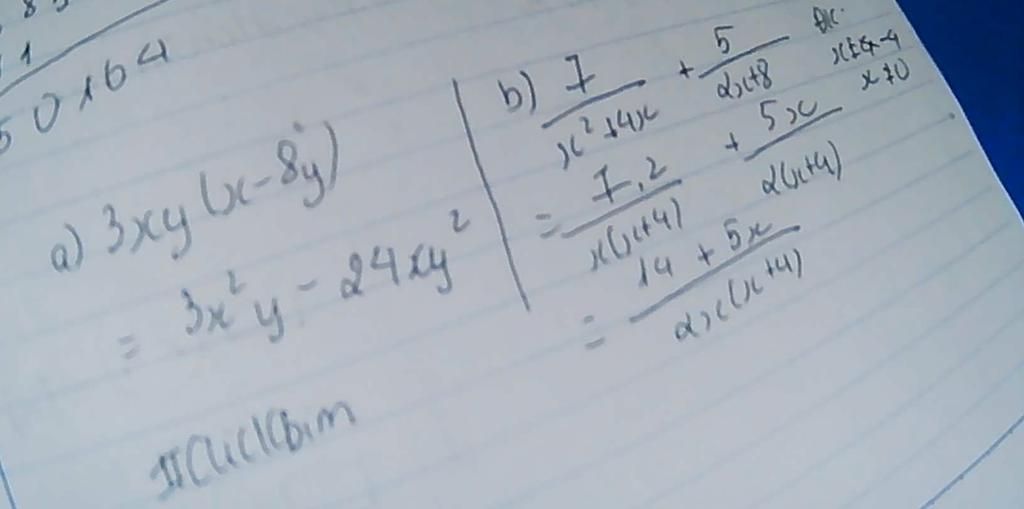 50 x 64
a) 3xy(x-8y)
= 3x²y - 24xy²
b) 7/(x²+4x) + 5/(2x+8)
x ≠ -4
x ≠ 0
= 7.2/x(x+4) + 5x/2(x+4)
= 14 + 5x/2x(x+4)